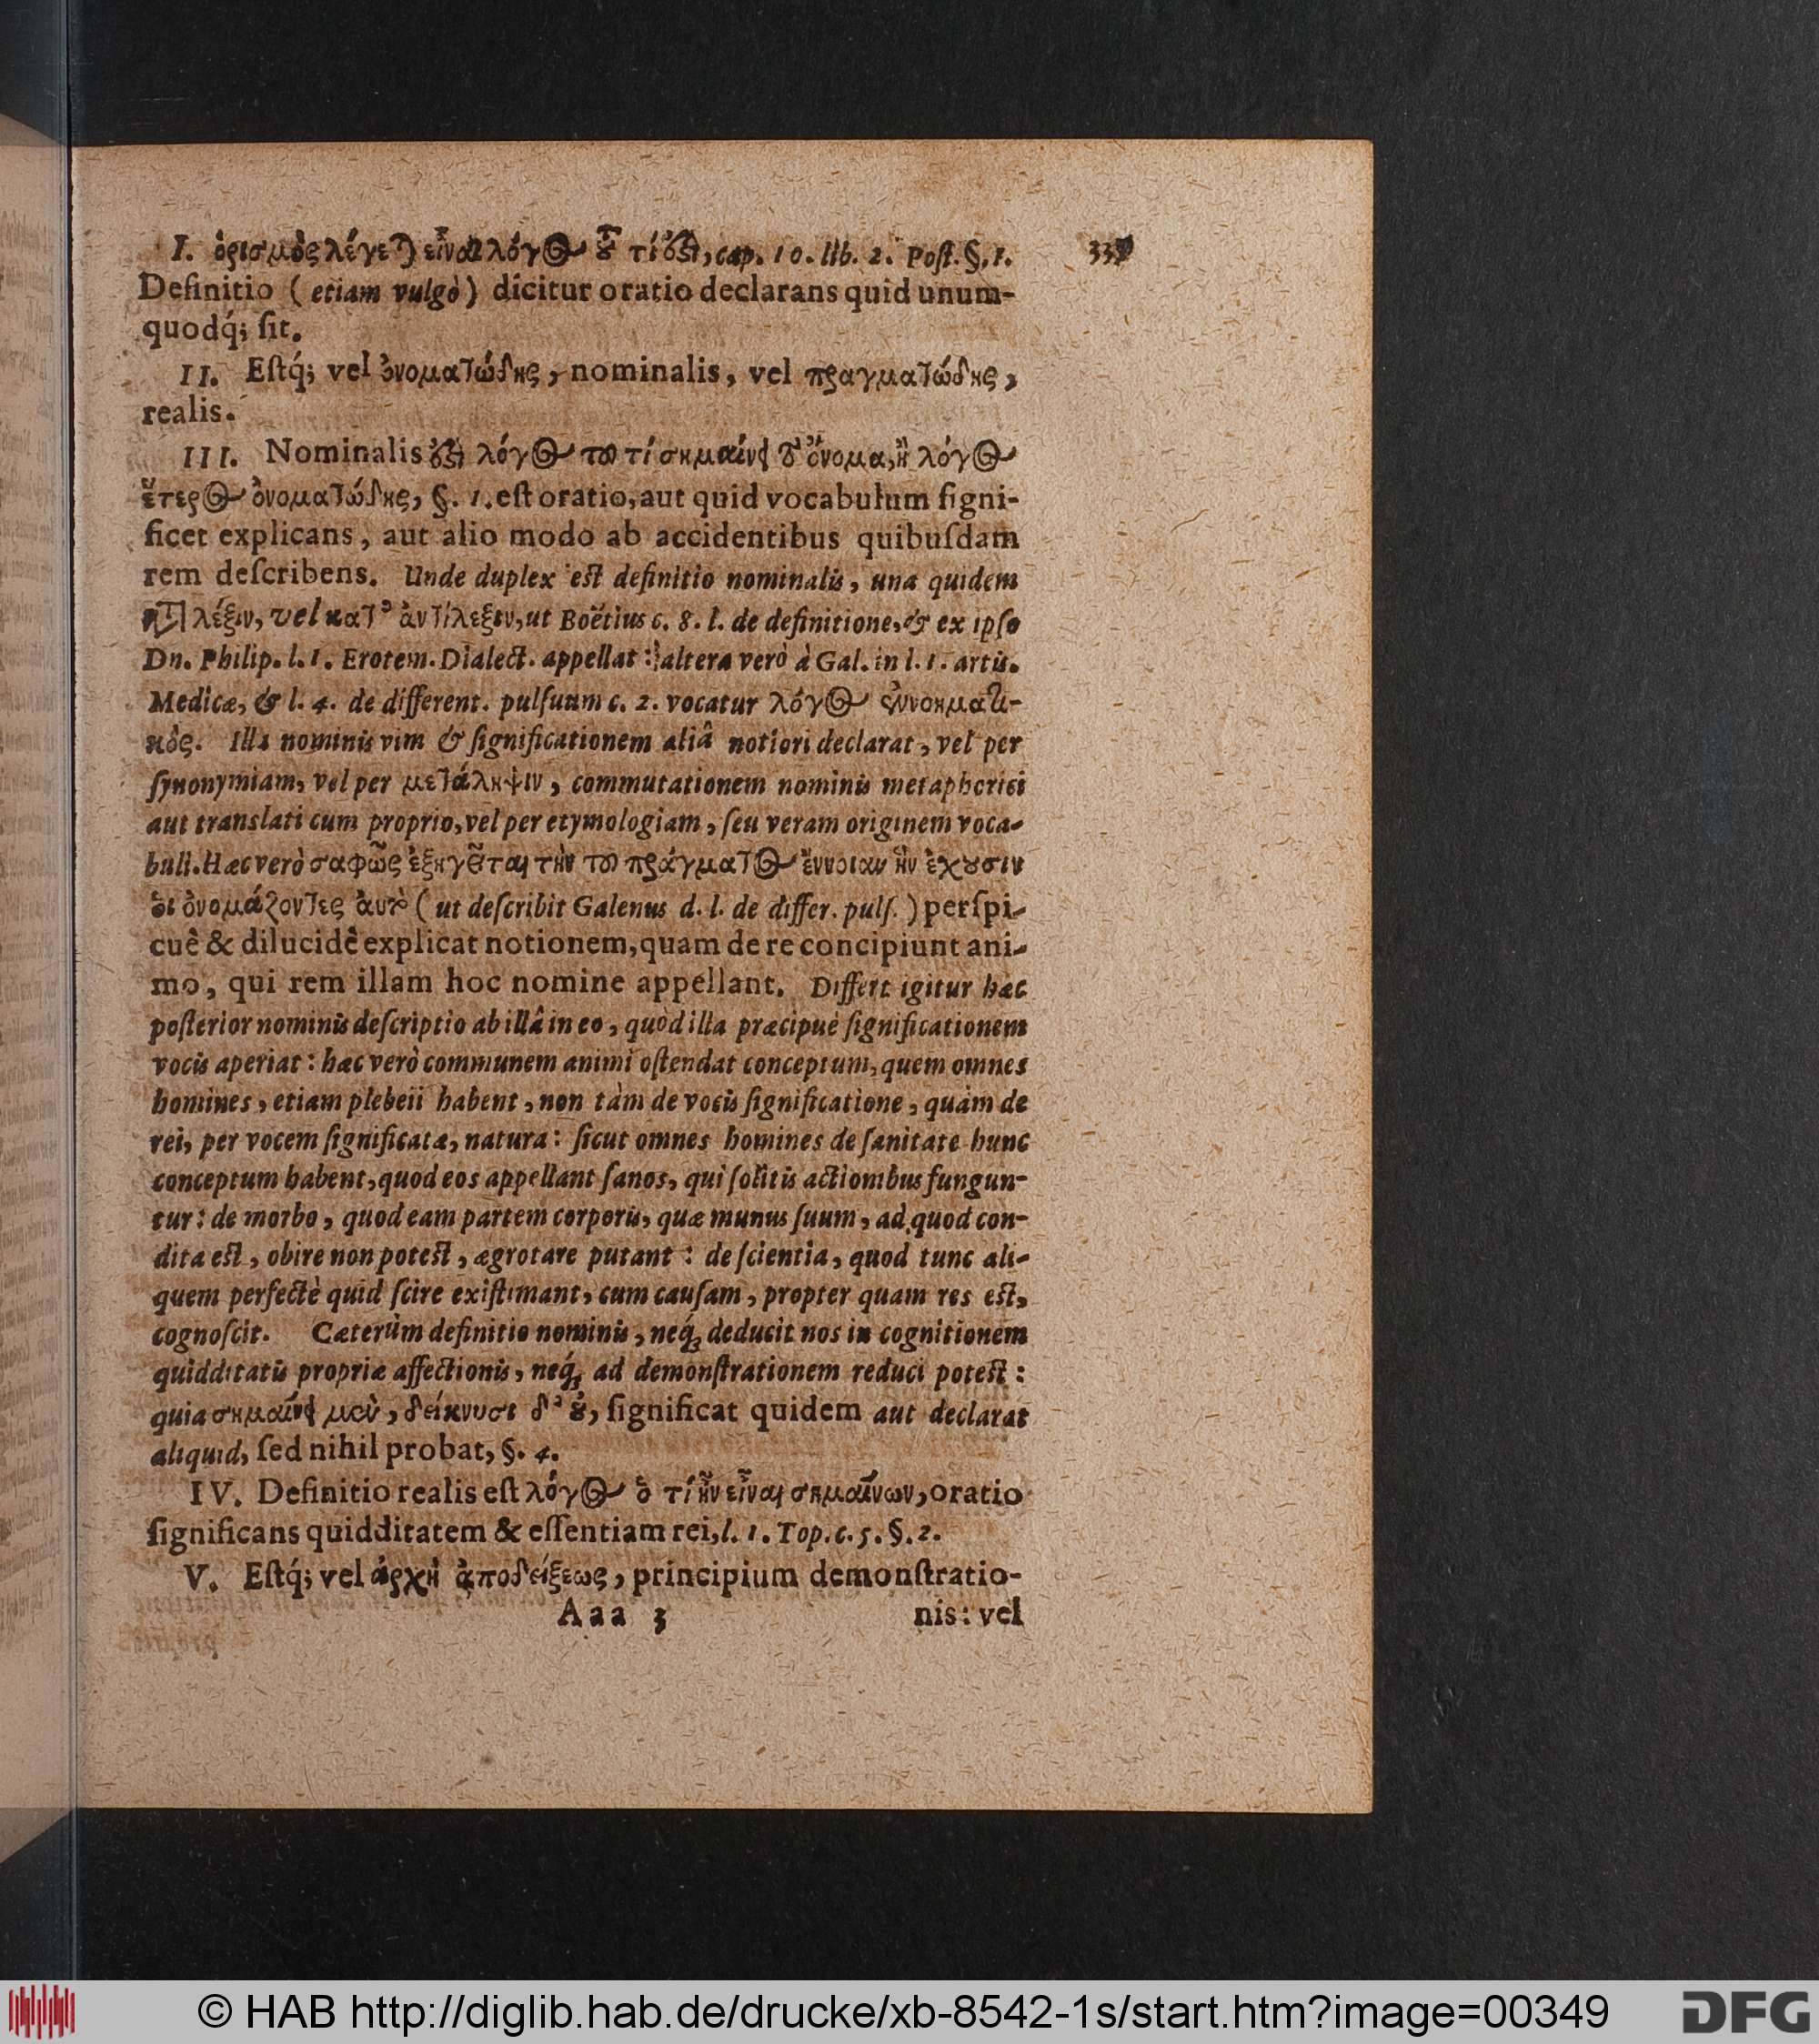 I. ὁρισμὸς λέγεται εἶναι λόγος τοῦ τί ἐστι, cap. 10. lib. 2. Post. §. 1.
337
Definitio (etiam vulgò) dicitur oratio declarans quid unum-
quodq́; ſit.
II. Eſtq́; vel ὀνοματώδης, nominalis, vel πραγματώδης,
realis.
III. Nominalis ἐστὶ λόγος τοῦ τί σημαίνει τὸ ὄνομα, ἢ λόγος
ἕτερος ὀνοματώδης, §. 1. eſt oratio, aut quid vocabulum ſigni-
ficet explicans, aut alio modo ab accidentibus quibuſdam
rem deſcribens. Unde duplex eſt definitio nominalis, una quidem
κατὰ λέξιν, vel κατ' ἀντίλεξιν, ut Boëtius c. 8. l. de definitione, & ex ipſo
Dn. Philip. l. 1. Erotem. Dialect. appellat: altera verò à Gal. in l. 1. artis.
Medicæ, & l. 4. de different. pulſuum c. 2. vocatur λόγος ἐννοηματι-
κὸς. Illa nominis vim & ſignificationem aliâ notiori declarat, vel per
ſynonymiam, vel per μετάληψιν, commutationem nominis metaphorici
aut translati cum proprio, vel per etymologiam, ſeu veram originem voca-
buli. Hæc verò σαφῶς ἐξηγεῖται τὴν τοῦ πράγματος ἔννοιαν ἣν ἔχουσιν
ὁι ὀνομάζοντες ἀυτὸ (ut deſcribit Galenus d. l. de differ. pulſ.) perſpi-
cuê & dilucidê explicat notionem, quam de re concipiunt ani-
mo, qui rem illam hoc nomine appellant. Differt igitur hæc
poſterior nominis deſcriptio ab illâ in eo, quòd illa præcipuè ſignificationem
vocis aperiat: hæc verò communem animi oſtendat conceptum, quem omnes
homines, etiam plebeii habent, non tàm de vocis ſignificatione, quàm de
rei, per vocem ſignificatæ, natura: ſicut omnes homines de ſanitate hunc
conceptum habent, quod eos appellant ſanos, qui ſolitis actionibus fungun-
tur: de morbo, quod eam partem corporis, quæ munus ſuum, ad quod con-
dita eſt, obire non poteſt, ægrotare putant: de ſcientia, quod tunc ali-
quem perfectè quid ſcire exiſtimant, cum cauſam, propter quam res eſt,
cognoſcit. Cæterùm definitio nominis, neq́; deducit nos in cognitionem
quidditatis propriæ affectionis, neq́; ad demonſtrationem reduci poteſt:
quia σημαίνει μεν̀, δείκνυσι δ' οὐ, ſignificat quidem aut declarat
aliquid, ſed nihil probat, §. 4.
IV. Definitio realis eſt λόγος ὁ τί ἦν εἶναι σημαίνων, oratio
ſignificans quidditatem & eſſentiam rei, l. 1. Top. c. 5. §. 2.
V. Eſtq́; vel ἀρχὴ ἀποδείξεως, principium demonſtratio-
Aaa 3 nis: vel
© HAB http://diglib.hab.de/drucke/xb-8542-1s/start.htm?image=00349
DFG